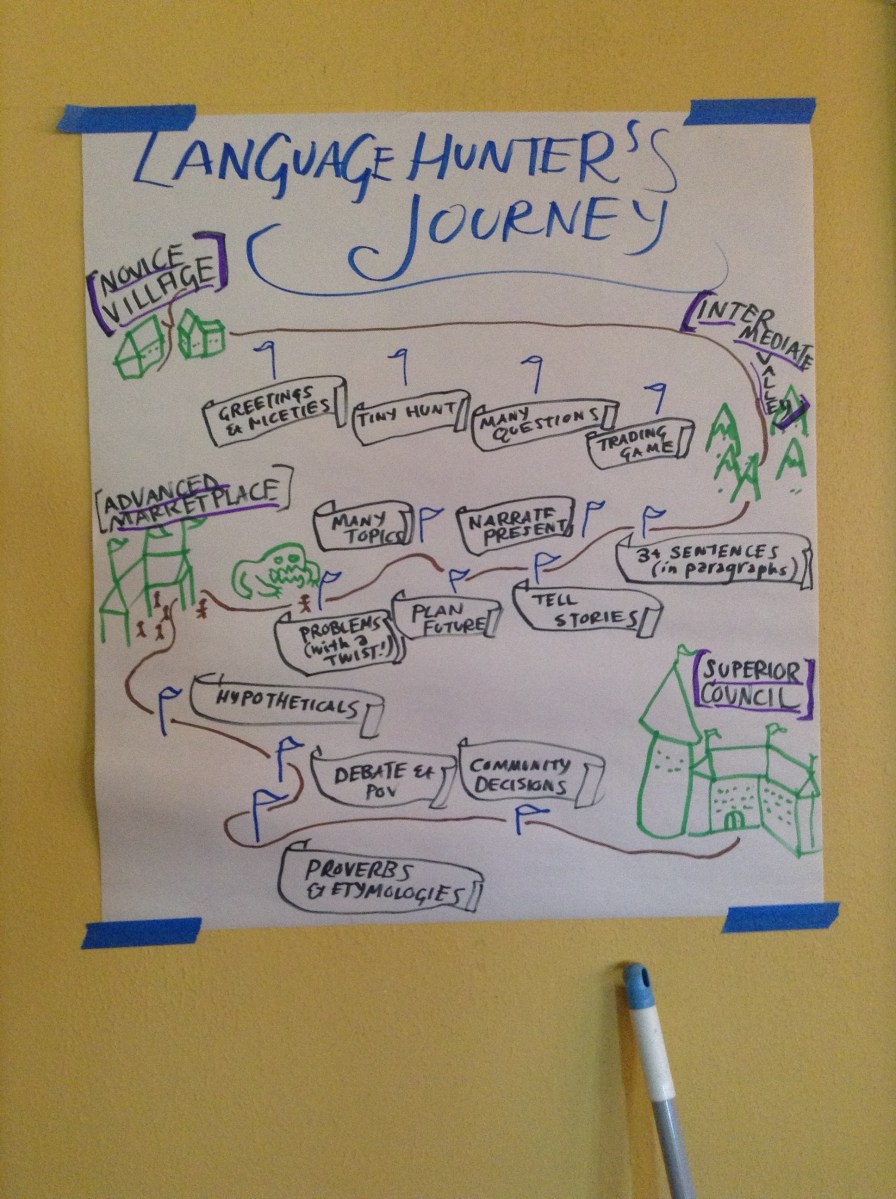 LANGUAGE HUNTER'S
JOURNEY
NOVICE
VILLAGE
INTER
MEDIATE
VALLEY
GREETINGS
& NICETIES
TINY HUNT
MANY
QUESTIONS
TRADING
GAME
ADVANCED
MARKETPLACE
MANY
TOPICS
NARRATE
PRESENT
3+ SENTENCES
(in paragraphs)
PROBLEMS
(with a
TWIST!)
PLAN
FUTURE
TELL
STORIES
SUPERIOR
COUNCIL
HYPOTHETICALS
DEBATE &
POV
COMMUNITY
DECISIONS
PROVERBS
& ETYMOLOGIES